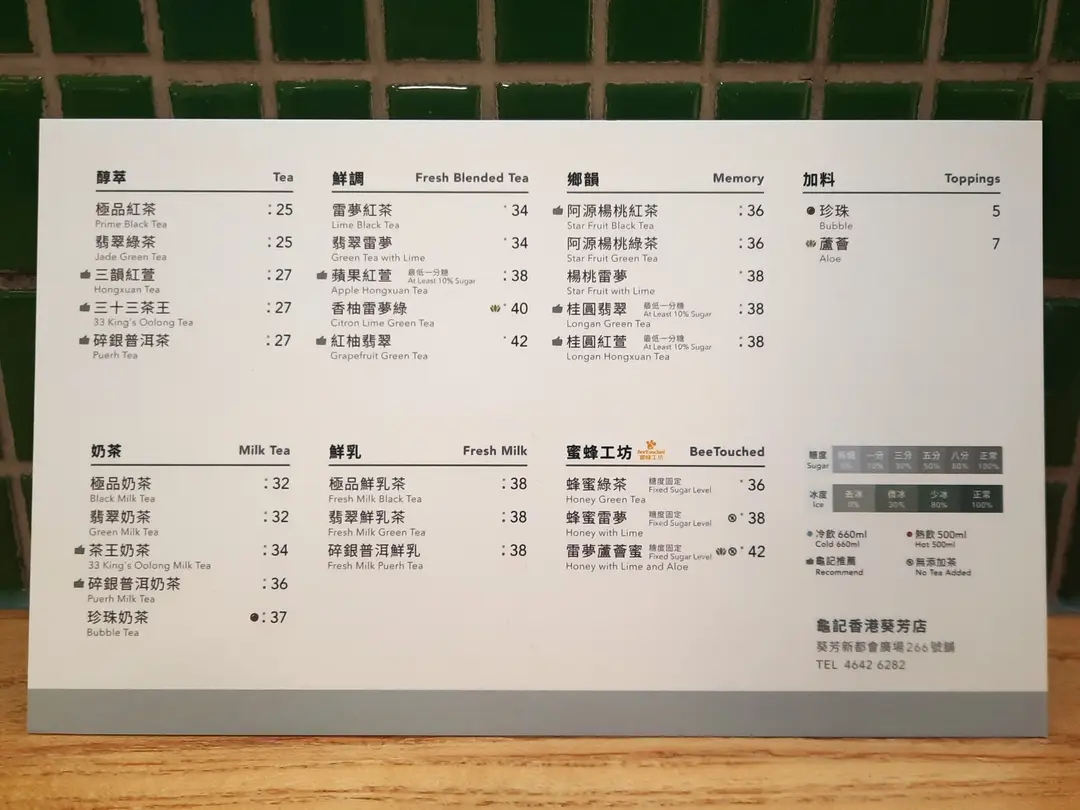 醇萃 Tea
極品紅茶 : 25
Prime Black Tea
翡翠綠茶 : 25
Jade Green Tea
三韻紅萱 : 27
Hongxuan Tea
三十三茶王 : 27
33 King's Oolong Tea
碎銀普洱茶 : 27
Puerh Tea
鮮調 Fresh Blended Tea
雷夢紅茶 34
Lime Black Tea
翡翠雷夢 34
Green Tea with Lime
蘋果紅萱 最低一分糖 : 38
At Least 10% Sugar
Apple Hongxuan Tea
香柚雷夢綠 40
Citron Lime Green Tea
紅柚翡翠 42
Grapefruit Green Tea
鄉韻 Memory
阿源楊桃紅茶 : 36
Star Fruit Black Tea
阿源楊桃綠茶 : 36
Star Fruit Green Tea
楊桃雷夢 38
Star Fruit with Lime
桂圓翡翠 最低一分糖 : 38
At Least 10% Sugar
Longan Green Tea
桂圓紅萱 最低一分糖 : 38
At Least 10% Sugar
Longan Hongxuan Tea
加料 Toppings
珍珠 5
Bubble
蘆薈 7
Aloe
奶茶 Milk Tea
極品奶茶 : 32
Black Milk Tea
翡翠奶茶 : 32
Green Milk Tea
茶王奶茶 : 34
33 King's Oolong Milk Tea
碎銀普洱奶茶 : 36
Puerh Milk Tea
珍珠奶茶 : 37
Bubble Tea
鮮乳 Fresh Milk
極品鮮乳茶 : 38
Fresh Milk Black Tea
翡翠鮮乳茶 : 38
Fresh Milk Green Tea
碎銀普洱鮮乳 : 38
Fresh Milk Puerh Tea
蜜蜂工坊 BeeTouched 蜜蜂工坊 BeeTouched
蜂蜜綠茶 糖度固定 36
Fixed Sugar Level
Honey Green Tea
蜂蜜雷夢 糖度固定 38
Fixed Sugar Level
Honey with Lime
雷夢蘆薈蜜 糖度固定 42
Fixed Sugar Level
Honey with Lime and Aloe
糖度 一分 三分 五分 八分 正常
Sugar 50% 100%
冰度 去冰 微冰 少冰 正常
Ice 0% 30% 80% 100%
冷飲 660ml 熱飲 500ml
Cold 660ml Hot 500ml
龜記推薦 無添加茶
Recommend No Tea Added
龜記香港葵芳店
葵芳新都會廣場266號舖
TEL 4642 6282